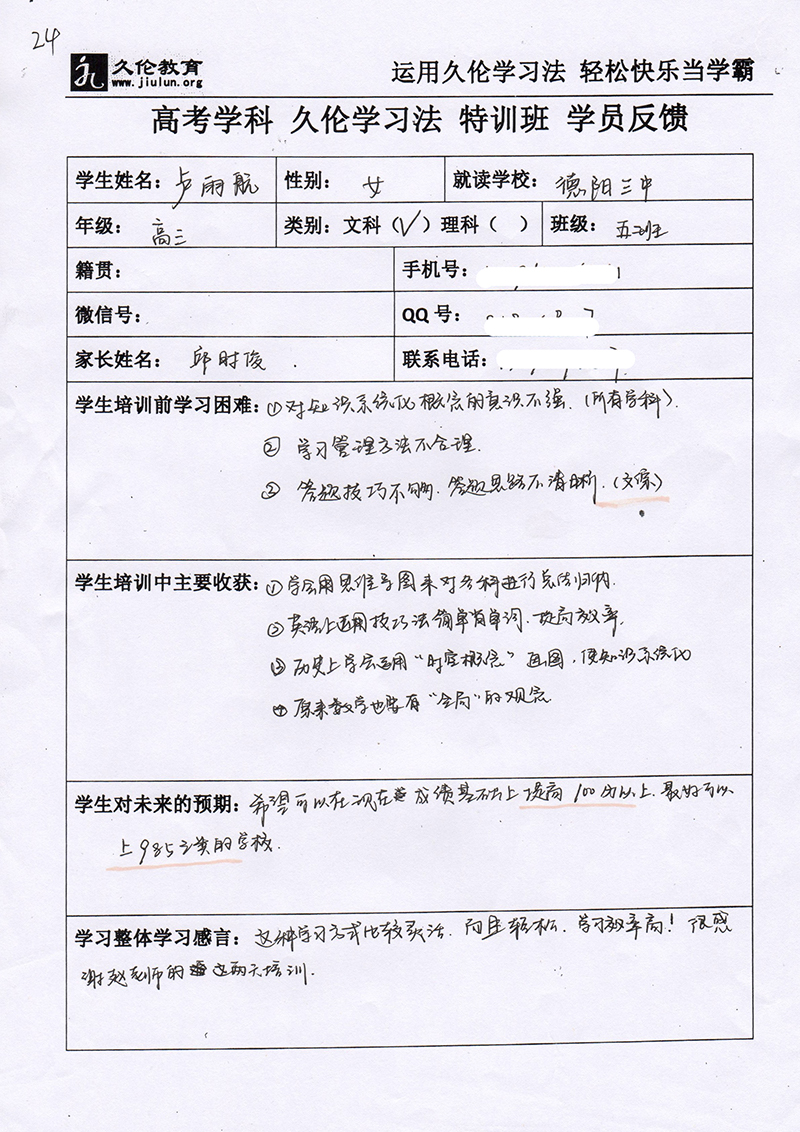 24
久伦教育
www.jiulun.org
运用久伦学习法 轻松快乐当学霸
高考学科 久伦学习法 特训班 学员反馈
学生姓名：卢雨航 性别：女 就读学校：德阳三中
年级：高三 类别：文科（√）理科（ ） 班级：五班
籍贯： 手机号：
微信号： QQ号：
家长姓名：邱时俊 联系电话：
学生培训前学习困难：①对知识系统化概念的意识不强.（所有学科）.
② 学习管理方法不合理.
③ 答题技巧不够.答题思路不清晰.（文综）
学生培训中主要收获：①学会用思维导图来对各科进行总结归纳.
②英语上运用技巧法简单背单词.提高效率.
③历史上学会运用“时空概念”画图，使知识系统化
④原来数学也要有“全局”的观念
学生对未来的预期：希望可以在现在成绩基础上提高100分以上.最好可以
上985之类的学校.
学习整体学习感言：这种学习方式比较灵活.而且轻松.学习效率高！很感
谢赵老师的这两天培训.